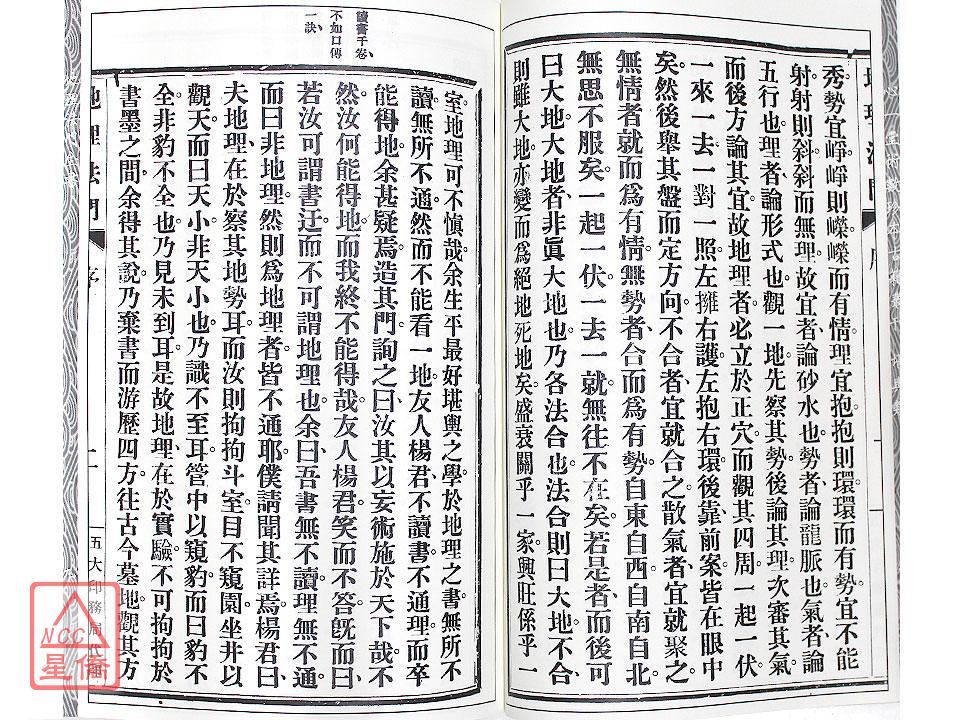 秀。勢宜崢。崢則嶸。嶸而有情。理宜抱。抱則環。環而有勢。宜不能
射。射則斜。斜而無理。故宜者、論砂水也。勢者、論龍脈也。氣者、論
五行也。理者、論形式也。觀一地先察其勢。後論其理。次審其氣
而後方論其宜。故地理者、必立於正穴。而觀其四周。一起一伏
一來一去。一對一照。左擁右護。左抱右環。後靠前案。皆在眼中
矣。然後舉其盤而定方向。不合者、宜就合之。散氣者、宜就聚之
無情者、就而爲有情。無勢者、合而爲有勢。自東自西。自南自北
無思不服矣。一起一伏。一去一就。無往不在矣。若是者、而後可
曰大地。大地者、非眞大地也。乃各法合也。法合則曰大地。不合
則雖大地亦變而爲絕地死地矣。盛衰關乎一家。興旺係乎一
讀書千卷、
不如口傳
一訣、
室。地理可不愼哉。余生平最好堪輿之學。於地理之書。無所不
讀。無所不通。然而不能看一地。友人楊君。不讀書。不通理。而卒
能得地。余甚疑焉。造其門、詢之、曰、汝其以妄術施於天下哉。不
然。汝何能得地。而我終不能得哉。友人楊君。笑而不答。旣而曰、
若汝可謂書迂。而不可謂地理也。余曰、吾書無不讀。理無不通
而曰非地理。然則爲地理者。皆不通耶。僕請聞其詳焉。楊君曰、
夫地理、在於察其地勢耳。而汝則拘拘斗室。目不窺園。坐井以
觀天。而曰天小。非天小也。乃識不至耳。管中以窺豹。而曰豹不
全。非豹不全也。乃見未到耳。是故地理、在於實驗。不可拘拘於
書墨之間。余得其說。乃棄書而游歷四方。往古今墓地。觀其方
地理法門
序
二
五大印務局
NCC
星僑